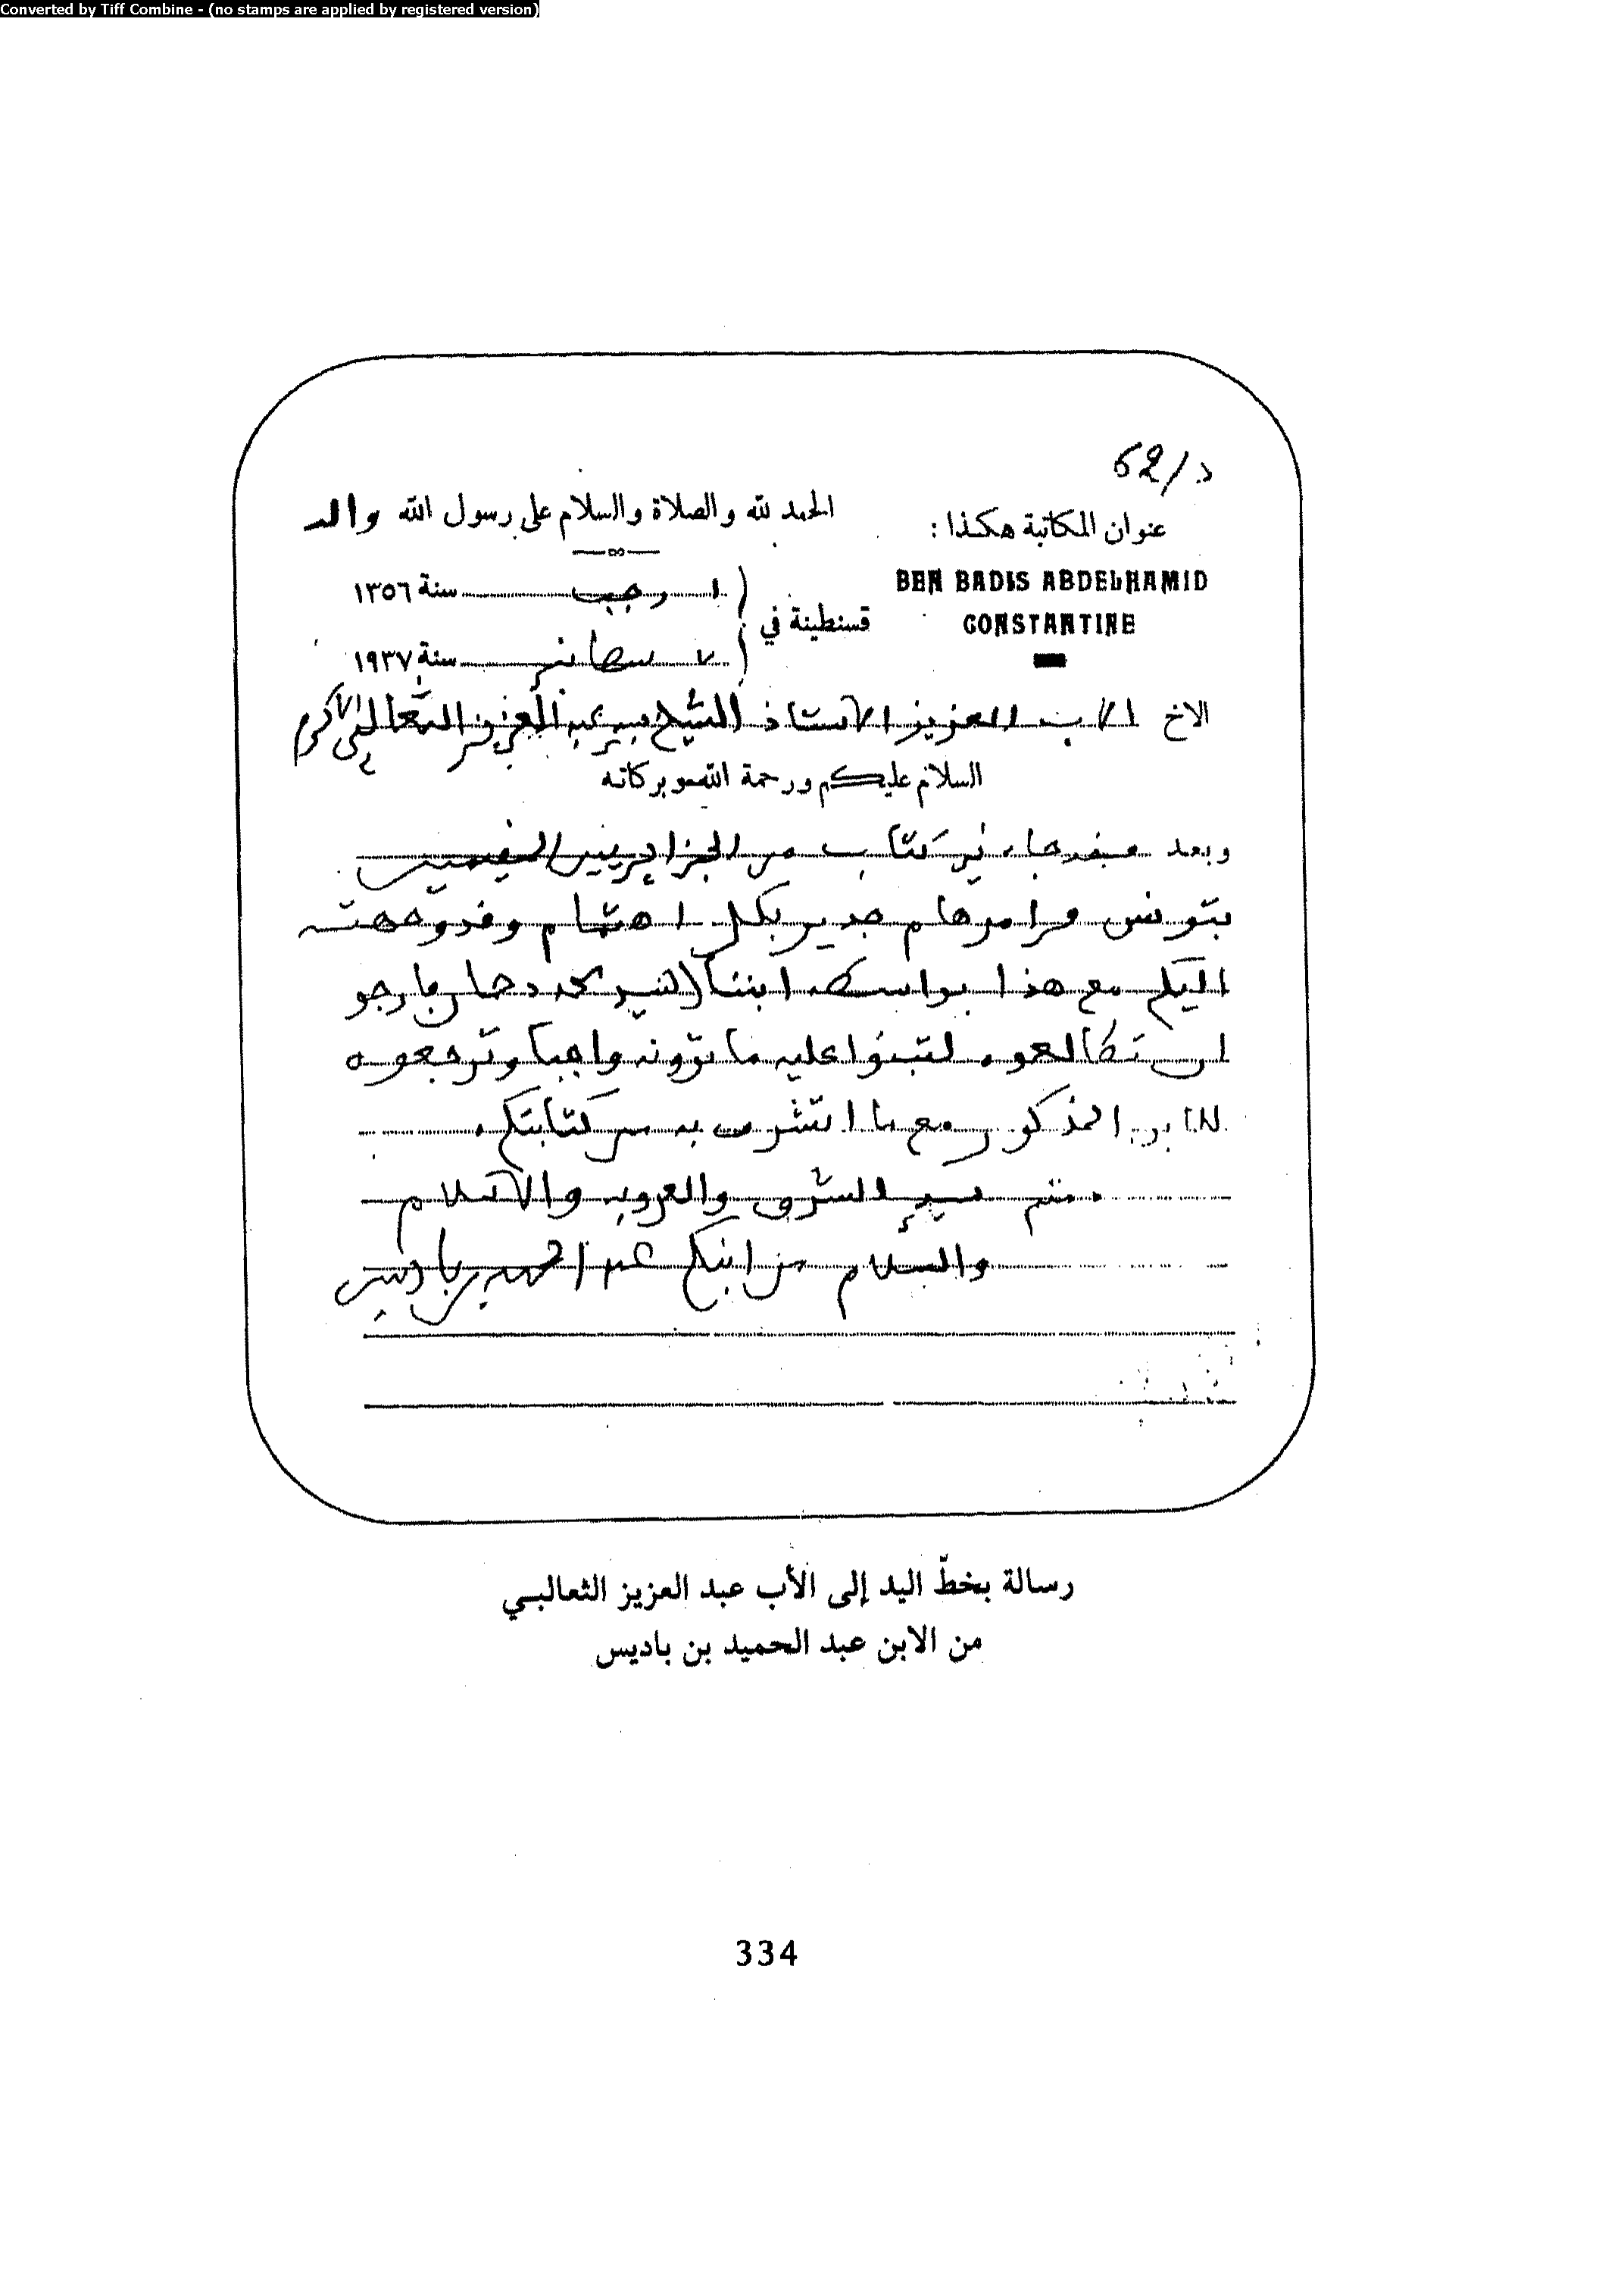 Converted by Tiff Combine - (no stamps are applied by registered version)
62/د
عنوان المكاتبة هكذا :
BEN BADIS ABDELHAMID
CONSTANTINE
الحمد لله والصلاة والسلام على رسول الله وآله
قسنطينة في
رجب سنة ١٣٥٦
٧ سبتانبر سنة ١٩٣٧
الاخ الاب العزيز الاستاذ الشيخ سيدي عبد العزيز الثعالبي الاكرم
السلام عليكم ورحمة الله وبركاته
وبعد فقد جاءني كتاب من الجزائريين المقيمين
بتونس في امر هام جدير بكل اهتمام وقد وجهته
اليكم مع هذا بواسطة ابننا السيد محمد ارجو
ان تطالعوه لتبنوا عليه ما ترونه واجبا وترجعوه
للابن المذكور مع ما اتشرف به من كتابتكم
دمتم للشرق والعروبة والاسلام
والسلام من ابنكم عبد الحميد بن باديس
رسالة بخطّ اليد إلى الأب عبد العزيز الثعالبـي
من الابن عبد الحميد بن باديس
334